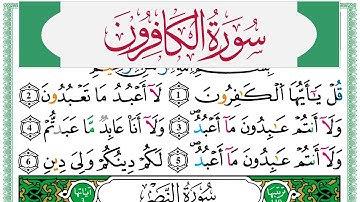 سُورَةُ الْكَافِرُونَ
قُلْ يَٰٓأَيُّهَا ٱلْكَٰفِرُونَ ١ لَآ أَعْبُدُ مَا تَعْبُدُونَ ٢
وَلَآ أَنتُمْ عَٰبِدُونَ مَآ أَعْبُدُ ٣ وَلَآ أَنَا۠ عَابِدٌ مَّا عَبَدتُّمْ ٤
وَلَآ أَنتُمْ عَٰبِدُونَ مَآ أَعْبُدُ ٥ لَكُمْ دِينُكُمْ وَلِىَ دِينِ ٦
سُورَةُ النَّصْرِ